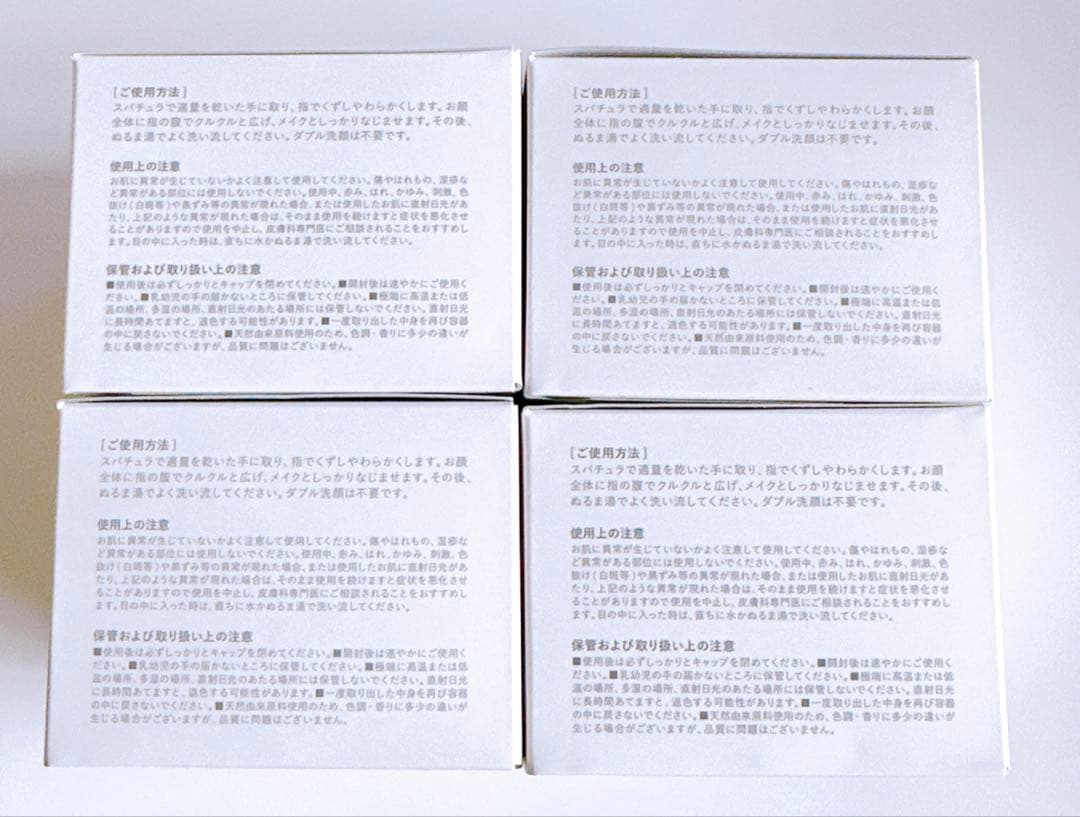 [ご使用方法]
スパチュラで適量を乾いた手に取り、指でくずしやわらかくします。お顔
全体に指の腹でクルクルと広げ、メイクとしっかりなじませます。その後、
ぬるま湯でよく洗い流してください。ダブル洗顔は不要です。
使用上の注意
お肌に異常が生じていないかよく注意して使用してください。傷やはれもの、湿疹な
ど異常がある部位には使用しないでください。使用中、赤み、はれ、かゆみ、刺激、色
抜け(白斑等)や黒ずみ等の異常が現れた場合、または使用したお肌に直射日光があ
たり、上記のような異常が現れた場合は、そのまま使用を続けますと症状を悪化させ
ることがありますので使用を中止し、皮膚科専門医にご相談されることをおすすめし
ます。目の中に入った時は、直ちに水かぬるま湯で洗い流してください。
保管および取り扱い上の注意
■使用後は必ずしっかりとキャップを閉めてください。■開封後は速やかにご使用く
ださい。■乳幼児の手の届かないところに保管してください。■極端に高温または低
温の場所、多湿の場所、直射日光のあたる場所には保管しないでください。直射日光
に長時間あてますと、退色する可能性があります。■一度取り出した中身を再び容器
の中に戻さないでください。■天然由来原料使用のため、色調・香りに多少の違いが
生じる場合がございますが、品質に問題はございません。
[ご使用方法]
スパチュラで適量を乾いた手に取り、指でくずしやわらかくします。お顔
全体に指の腹でクルクルと広げ、メイクとしっかりなじませます。その後、
ぬるま湯でよく洗い流してください。ダブル洗顔は不要です。
使用上の注意
お肌に異常が生じていないかよく注意して使用してください。傷やはれもの、湿疹な
ど異常がある部位には使用しないでください。使用中、赤み、はれ、かゆみ、刺激、色
抜け(白斑等)や黒ずみ等の異常が現れた場合、または使用したお肌に直射日光があ
たり、上記のような異常が現れた場合は、そのまま使用を続けますと症状を悪化させ
ることがありますので使用を中止し、皮膚科専門医にご相談されることをおすすめし
ます。目の中に入った時は、直ちに水かぬるま湯で洗い流してください。
保管および取り扱い上の注意
■使用後は必ずしっかりとキャップを閉めてください。■開封後は速やかにご使用く
ださい。■乳幼児の手の届かないところに保管してください。■極端に高温または低
温の場所、多湿の場所、直射日光のあたる場所には保管しないでください。直射日光
に長時間あてますと、退色する可能性があります。■一度取り出した中身を再び容器
の中に戻さないでください。■天然由来原料使用のため、色調・香りに多少の違いが
生じる場合がございますが、品質に問題はございません。
[ご使用方法]
スパチュラで適量を乾いた手に取り、指でくずしやわらかくします。お顔
全体に指の腹でクルクルと広げ、メイクとしっかりなじませます。その後、
ぬるま湯でよく洗い流してください。ダブル洗顔は不要です。
使用上の注意
お肌に異常が生じていないかよく注意して使用してください。傷やはれもの、湿疹な
ど異常がある部位には使用しないでください。使用中、赤み、はれ、かゆみ、刺激、色
抜け(白斑等)や黒ずみ等の異常が現れた場合、または使用したお肌に直射日光があ
たり、上記のような異常が現れた場合は、そのまま使用を続けますと症状を悪化させ
ることがありますので使用を中止し、皮膚科専門医にご相談されることをおすすめし
ます。目の中に入った時は、直ちに水かぬるま湯で洗い流してください。
保管および取り扱い上の注意
■使用後は必ずしっかりとキャップを閉めてください。■開封後は速やかにご使用く
ださい。■乳幼児の手の届かないところに保管してください。■極端に高温または低
温の場所、多湿の場所、直射日光のあたる場所には保管しないでください。直射日光
に長時間あてますと、退色する可能性があります。■一度取り出した中身を再び容器
の中に戻さないでください。■天然由来原料使用のため、色調・香りに多少の違いが
生じる場合がございますが、品質に問題はございません。
[ご使用方法]
スパチュラで適量を乾いた手に取り、指でくずしやわらかくします。お顔
全体に指の腹でクルクルと広げ、メイクとしっかりなじませます。その後、
ぬるま湯でよく洗い流してください。ダブル洗顔は不要です。
使用上の注意
お肌に異常が生じていないかよく注意して使用してください。傷やはれもの、湿疹な
ど異常がある部位には使用しないでください。使用中、赤み、はれ、かゆみ、刺激、色
抜け(白斑等)や黒ずみ等の異常が現れた場合、または使用したお肌に直射日光があ
たり、上記のような異常が現れた場合は、そのまま使用を続けますと症状を悪化させ
ることがありますので使用を中止し、皮膚科専門医にご相談されることをおすすめし
ます。目の中に入った時は、直ちに水かぬるま湯で洗い流してください。
保管および取り扱い上の注意
■使用後は必ずしっかりとキャップを閉めてください。■開封後は速やかにご使用く
ださい。■乳幼児の手の届かないところに保管してください。■極端に高温または低
温の場所、多湿の場所、直射日光のあたる場所には保管しないでください。直射日光
に長時間あてますと、退色する可能性があります。■一度取り出した中身を再び容器
の中に戻さないでください。■天然由来原料使用のため、色調・香りに多少の違いが
生じる場合がございますが、品質に問題はございません。